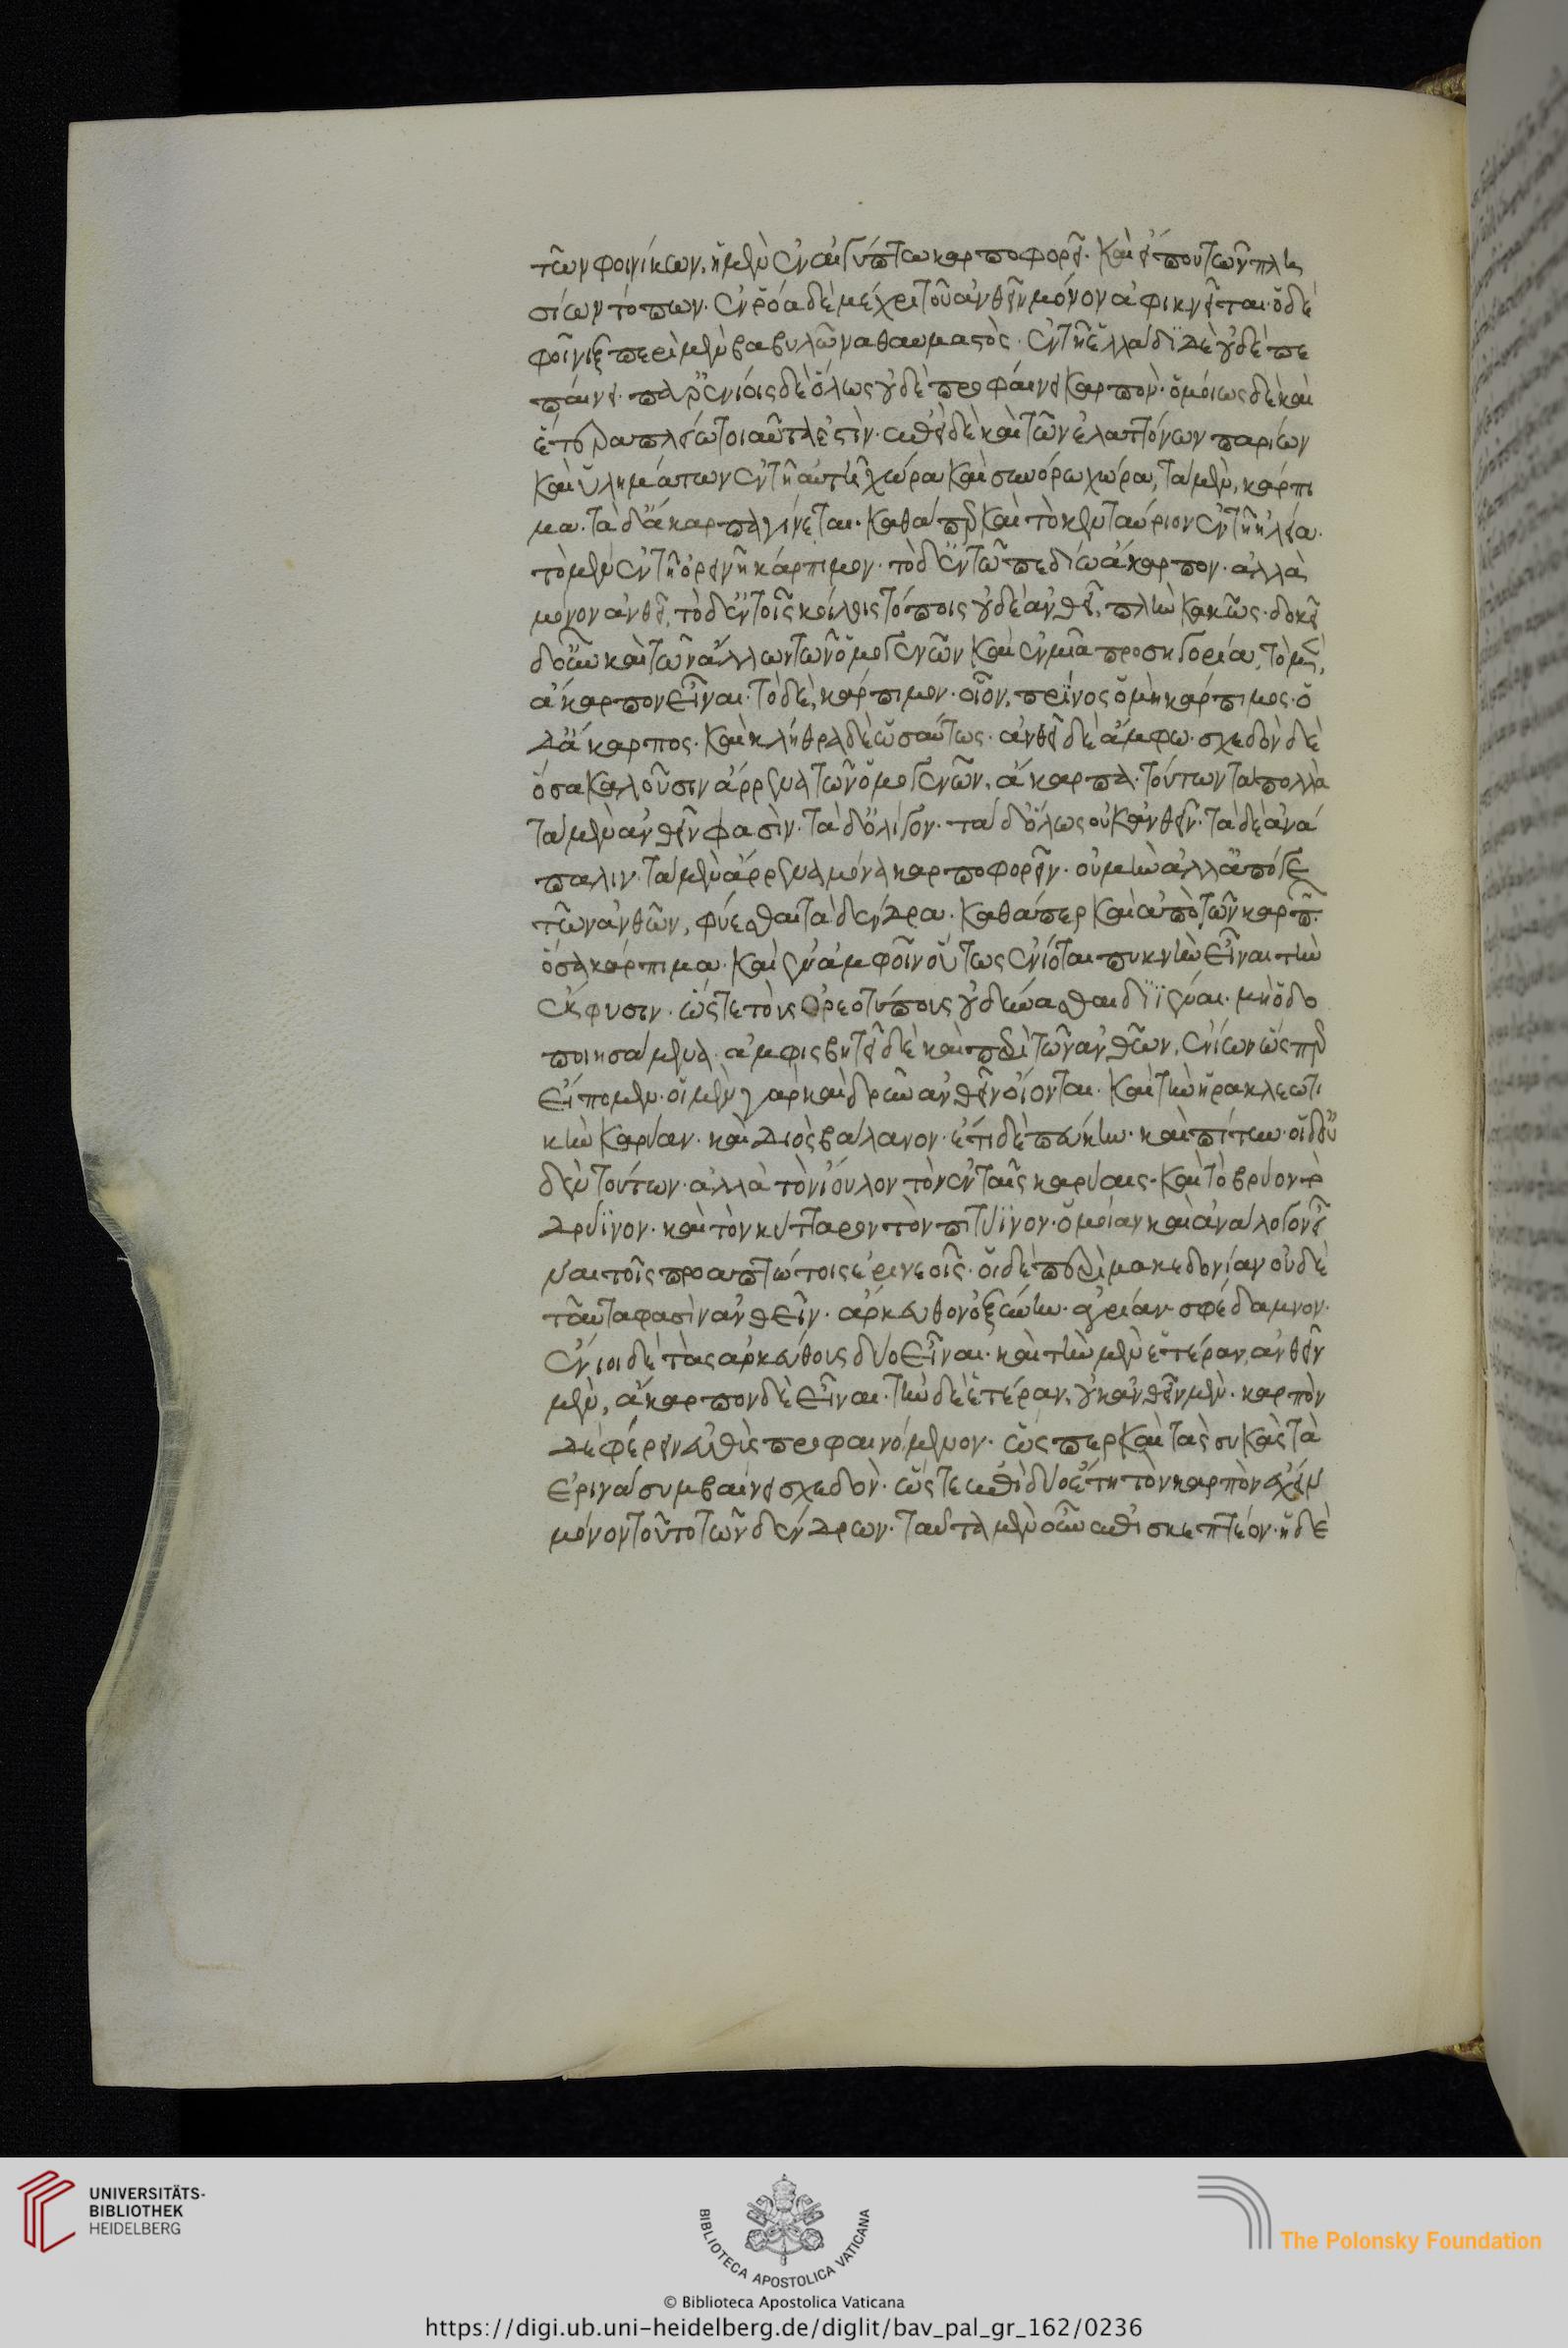 τῶν φοινίκων, ἡ μὲν ἐν αἰγύπτω καρποφορεῖ. καὶ εἴ που τῶν πλη
σίων τόπων. ἐν ῥόδω δὲ μέχρι τοῦ ἀνθεῖν μόνον ἀφικνεῖται. ὁ δὲ
φοῖνιξ περὶ μὲν βαβυλῶνα θαυμαστὸς. ἐν τῆ ἑλλάδι δὲ οὐδὲ πε
παίνει. παρ' ἐνίοις δὲ ὅλως οὐδὲ προφαίνει καρπὸν. ὁμοίως δὲ καὶ
ἕτερα πλείω τοιαῦτα ἐστὶν. ἐπεὶ δὲ καὶ τῶν ἐλαττόνων ποαρίων
καὶ ὑλημάτων ἐν τῆ αὐτῆ χώρα καὶ συνόρω χώρα, τὰ μὲν, κάρπι
μα. τὰ δ' ἄκαρπα γίνεται. καθάπερ καὶ τὸ κενταύριον ἐν τῆ ἠλεία.
τὸ μὲν ἐν τῆ ὀρεινῆ κάρπιμον. τὸ δ' ἐν τῶ πεδίω ἄκαρπον. ἀλλὰ
μόνον ἀνθεῖ, τὸ δ' ἐν τοῖς κοίλοις τόποις οὐδὲ ἀνθεῖ, πλὴν κακῶς. δοκεῖ
δ' οὖν καὶ τῶν ἄλλων τῶν ὁμογενῶν καὶ ἐν μιᾶ προσηγορία, τὸ μὲν,
ἄκαρπον εἶναι. τὸ δὲ, κάρπιμον. οἷον, πρίνος ὁ μὴ κάρπιμος. ὁ
δ' ἄκαρπος. καὶ κλήθρα δὲ ὡσαύτως. ἀνθεῖ δὲ ἄμφω. σχεδὸν δὲ
ὅσα καλοῦσιν ἄρρενα τῶν ὁμογενῶν, ἄκαρπα. τούτων τὰ πολλὰ
τὰ μὲν ἀνθεῖν φασὶν. τὰ δ' ὀλίγον. τὰ δ' ὅλως οὐκ ἀνθεῖν. τὰ δὲ ἀνά
παλιν. τὰ μὲν ἄρρενα μόνα καρποφορεῖν. οὐ μὴν ἀλλ' ἀπό γε
τῶν ἀνθῶν, φύεσθαι τὰ δένδρα. καθάπερ καὶ ἀπὸ τῶν καρπ.
ὅσα κάρπιμα. καὶ ἐν ἀμφοῖν οὕτως ἐνίοται πυκνὴν εἶναι τὴν
ἔκφυσιν. ὥστε τοὺς ὀρεοτύπους οὐ δύνασθαι διϊέναι. μὴ ὁδο
ποιησάμενα. ἀμφισβητεῖ δὲ καὶ περὶ τῶν ἀνθῶν, ἐνίων ὥσπερ
εἴπομεν. οἱ μὲν γὰρ καὶ δρῦν ἀνθεῖν οἴονται. καὶ τὴν ἡρακλεωτι
κὴν καρύαν. καὶ διὸς βάλανον. ἔτι δὲ πεύκην. καὶ πίτυν. οἱ δ' οὐ
δὲν τούτων. ἀλλὰ τὸν ἴουλον τὸν ἐν ταῖς καρύαις. καὶ τὸ βρύον τὸ
δρύϊνον. καὶ τὸν κύτταρον τὸν πιτύϊνον. ὁμοίαν καὶ ἀνάλογον εἶ
ναι τοῖς προαπτώτοις ἐρινεοῖς. οἱ δὲ περὶ μακεδονίαν οὐδὲ
ταῦτα φασὶν ἀνθεῖν. ἄρκευθον ὀξεύην. ἀρίαν. σφέδαμνον.
ἔνιοι δὲ τὰς ἀρκεύθους δύο εἶναι. καὶ τὴν μὲν ἑτέραν, ἀνθεῖν
μὲν, ἄκαρπον δὲ εἶναι. τὴν δὲ ἑτέραν, οὐκ ἀνθεῖν μὲν. καρπὸν
δὲ φέρειν εὐθὺς προφαινόμενον. ὥσπερ καὶ τὰς συκᾶς τὰ
ἐρινά συμβαίνει σχεδὸν. ὥστε ἐπὶ δύο ἔτη τὸν καρπὸν ἔχειν
μόνον τοῦτο τῶν δένδρων. ταῦτα μὲν οὖν ἐπισκεπτέον. ἡ δὲ
UNIVERSITÄTS-
BIBLIOTHEK
HEIDELBERG
BIBLIOTECA APOSTOLICA VATICANA
The Polonsky Foundation
© Biblioteca Apostolica Vaticana
https://digi.ub.uni-heidelberg.de/diglit/bav_pal_gr_162/0236